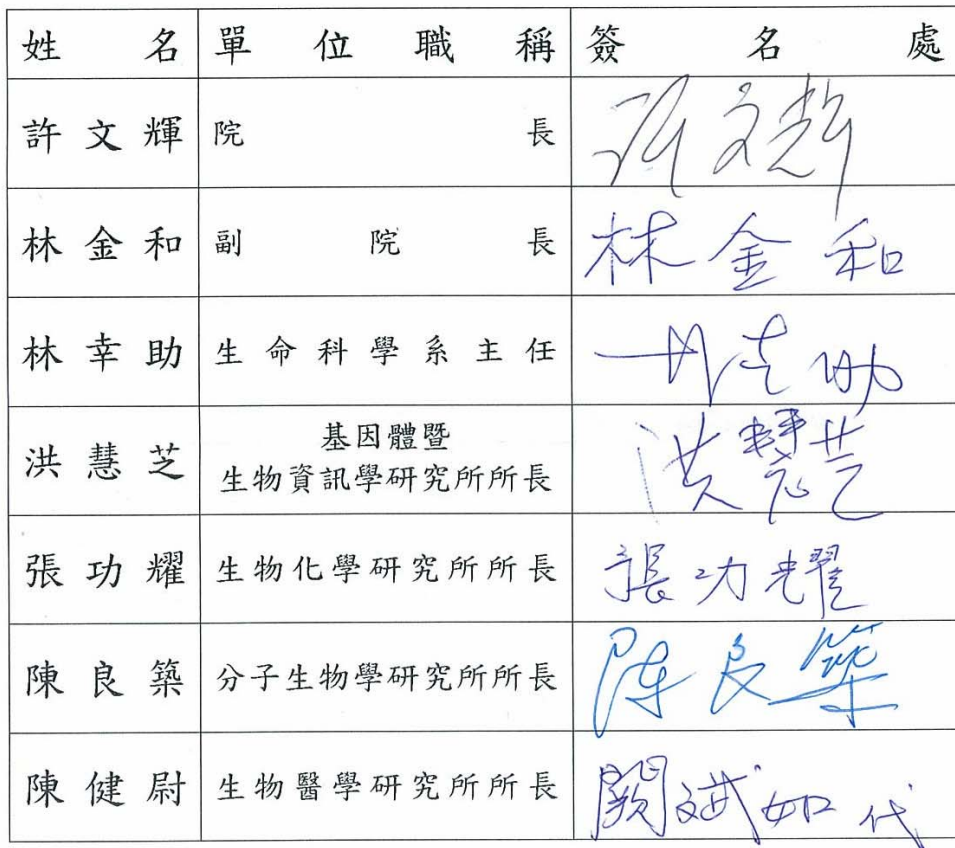 姓名 單位職稱 簽名處
許文輝 院長 許文輝
林金和 副院長 林金和
林幸助 生命科學系主任 林幸助
洪慧芝 基因體暨 洪慧芝
生物資訊學研究所所長
張功耀 生物化學研究所所長 張功耀
陳良築 分子生物學研究所所長 陳良築
陳健尉 生物醫學研究所所長 闕斌如代